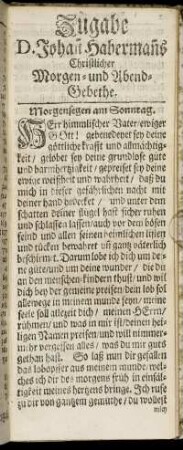 Zugabe
D. Johañ Habermañs
Christlicher
Morgen- und Abend-
Gebethe.
Morgensegen am Sonntag.
HErr himmlischer Vater/ ewiger
GOtt! gebenedeyet sey deine
göttliche krafft und allmächtig-
keit/ gelobet sey deine grundlose güte
und barmhertzigkeit/ gepreiset sey deine
ewige weißheit und wahrheit/ daß du
mich in dieser gefährlichen nacht mit
deiner hand bedecket/ und unter dem
schatten deiner flügel hast sicher ruhen
und schlaffen lassen/ auch vor dem bösen
feind und allen seinen heimlichen listen
und tücken bewahret uñ gantz väterlich
beschirmet. Darum lobe ich dich um dei-
ne güte/ und um deine wunder/ die du
an den menschen-kindern thust/ und will
dich bey der gemeine preisen/ dein lob sol
allewege in meinem munde seyn/ meine
seele soll allezeit dich/ meinen HErrn/
rühmen/ und was in mir ist/ deinen hei-
ligen Namen preisen/ und will nimmer-
mehr vergessen alles/ was du mir guts
gethan hast. So laß nun dir gefallen
das lobopffer aus meinem munde/ wel-
ches ich dir des morgens früh in einfäl-
tigkeit meines hertzens bringe. Ich ruffe
zu dir von gantzem gemüthe/ du wollest
mich